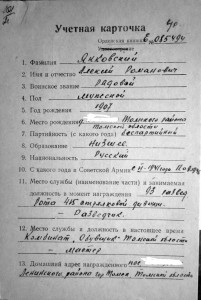 Учетная карточка
Орденская книжка
№ 085494
1. Фамилия Янковский
2. Имя и отчество Алексей Романович
3. Воинское звание рядовой
4. Пол мужской
5. Год рождения 1907
6. Место рождения Томского района
Томской области
7. Партийность (с какого года) беспартийный
8. Образование Низшее
9. Национальность Русский
10. С какого года в Советской Армии
11. Место службы (наименование части) и занимаемая
должность в момент награждения 03 развед
рота 415 стрелковой дивизии
- Разведчик
12. Место службы и должность в настоящее время
Комбинат Томской области
- Мастер
13. Домашний адрес награжденного
района Томской области